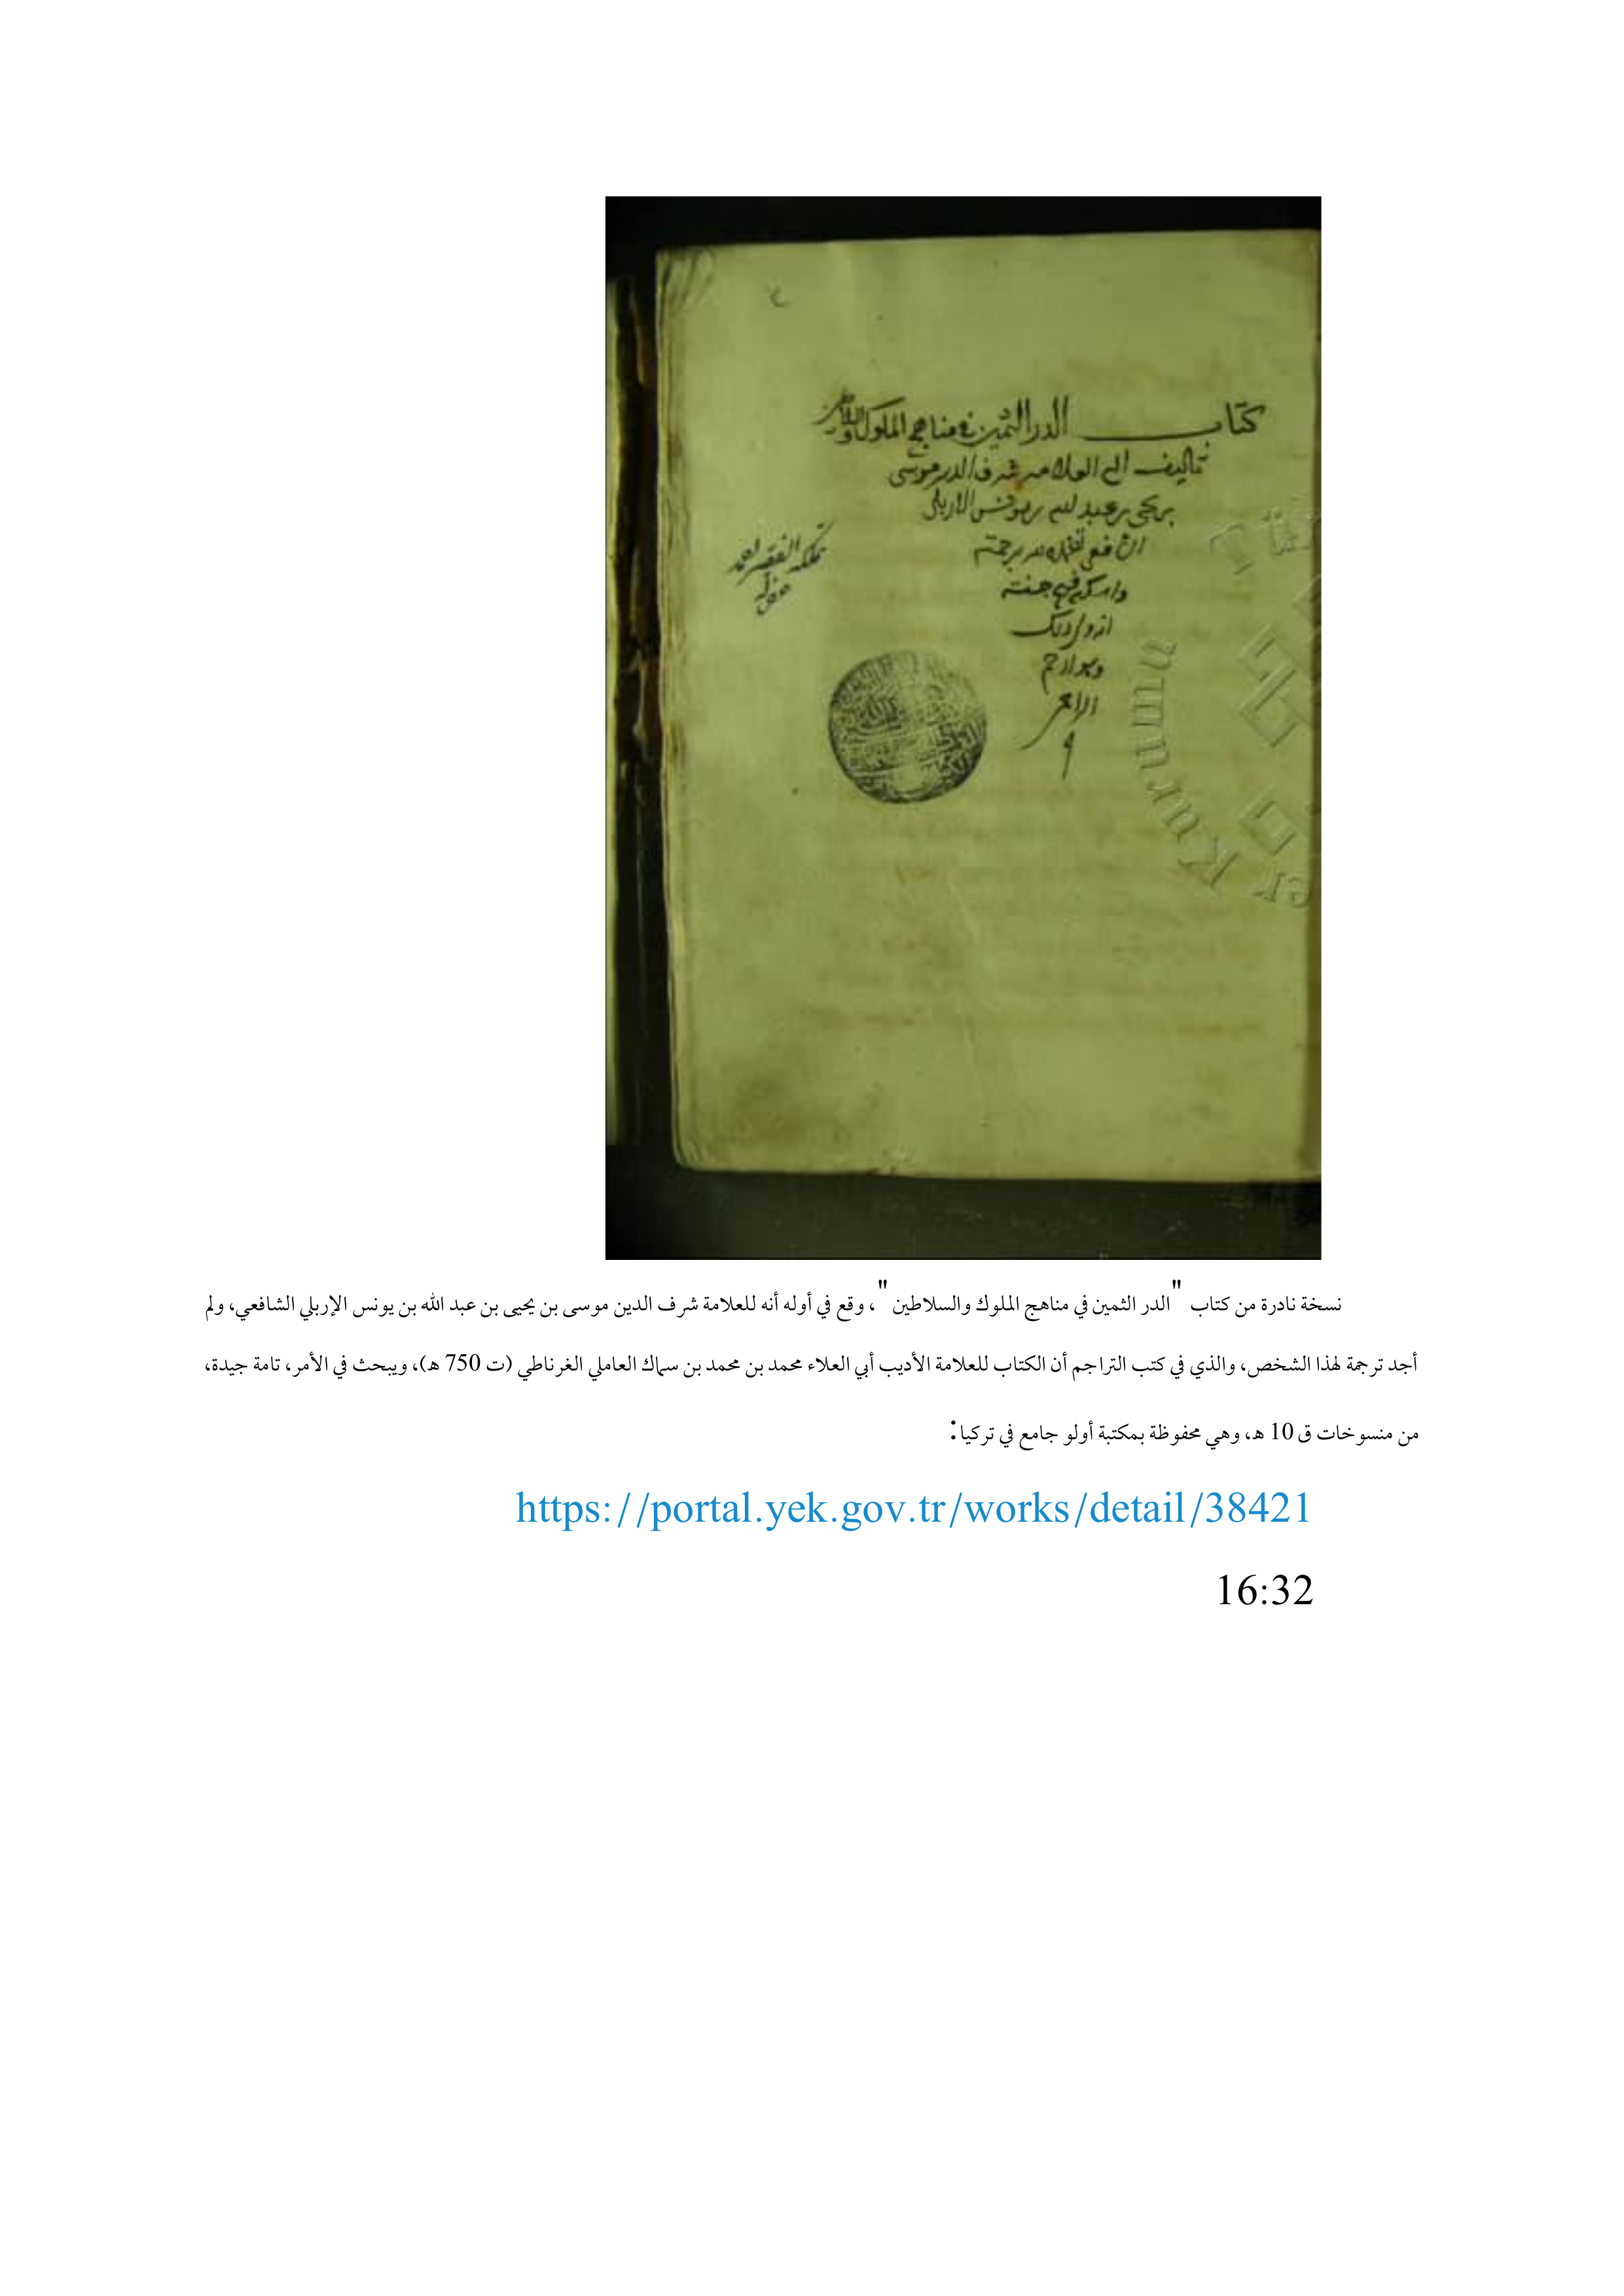 كتاب الدر الثمين في مناهج الملوك والسلاطين
تاليف العلامه شرف الدين موسى
بن يحيى بن عبد الله بن يونس الاربلي
الشافعي تغمده الله برحمته
واسكنه في جنته
انه ولى ذلك
وهو ارحم
الراحمين
تملكه الفقير
نسخة نادرة من كتاب "الدر الثمين في مناهج الملوك والسلاطين"، وقع في أوله أنه للعلامة شرف الدين موسى بن يحيى بن عبد الله بن يونس الإربلي الشافعي، ولم
أجد ترجمة لهذا الشخص، والذي في كتب التراجم أن الكتاب للعلامة الأديب أبي العلاء محمد بن محمد بن سماك العاملي الغرناطي (ت 750 هـ)، ويبحث في الأمر، تامة جيدة،
من منسوخات ق 10 هـ، وهي محفوظة بمكتبة أولو جامع في تركيا:
https://portal.yek.gov.tr/works/detail/38421
16:32